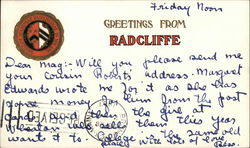 Friday Noon
GREETINGS FROM
RADCLIFFE
Dear Mag:- Will you please send me
your cousin Robert's address. Margaret
Edwards wrote me for it as she has
some money for him from the post
cards and then the girl at
Wheaton who sells them this year
want it to. The same old
college with lots of love
Bess.